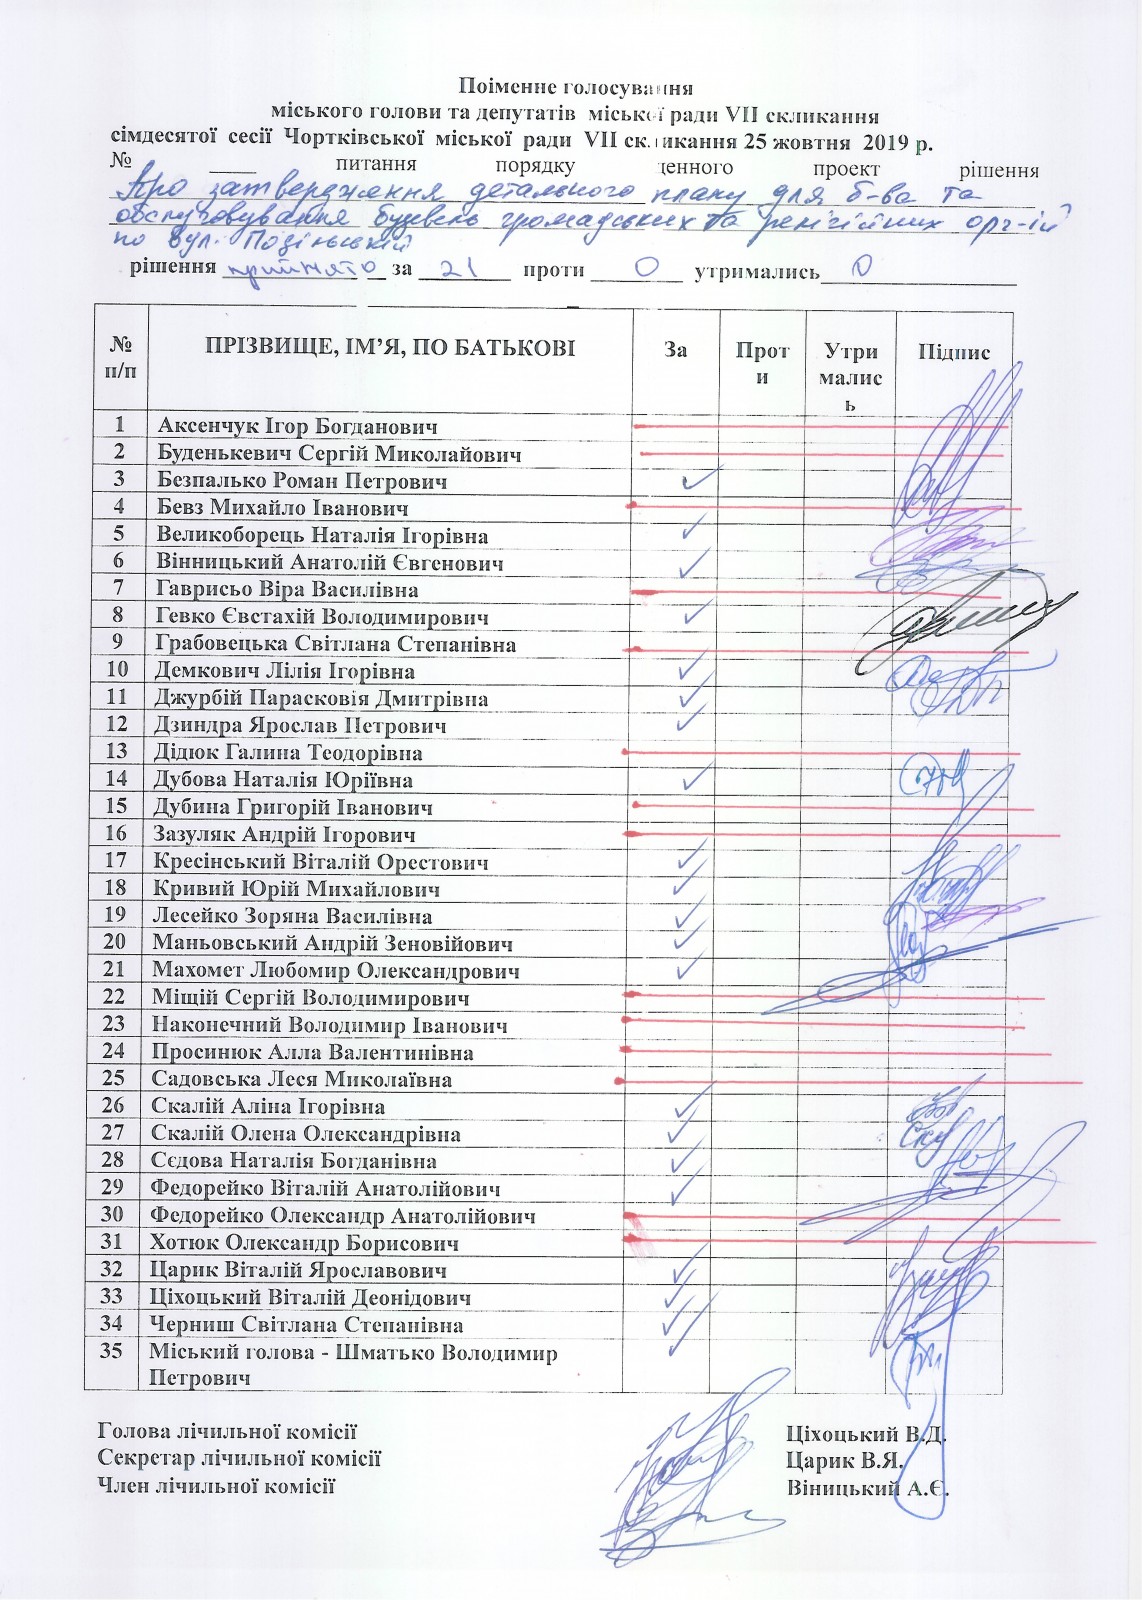 Поіменне голосування
міського голови та депутатів міської ради VII скликання
сімдесятої сесії Чортківської міської ради VII скликання 25 жовтня 2019 р.
№ ____ питання порядку денного проект рішення
Про затвердження детального плану для б-ва та
обслуговування будівель громадських та релігійних орг-ій
по вул.
рішення прийнято за 21 проти 0 утримались 0
№ п/п ПРІЗВИЩЕ, ІМ’Я, ПО БАТЬКОВІ За Проти Утримались Підпис
1 Аксенчук Ігор Богданович
2 Буденькевич Сергій Миколайович
3 Безпалько Роман Петрович ✓
4 Бевз Михайло Іванович
5 Великоборець Наталія Ігорівна ✓
6 Вінницький Анатолій Євгенович ✓
7 Гаврисьо Віра Василівна
8 Гевко Євстахій Володимирович ✓
9 Грабовецька Світлана Степанівна
10 Демкович Лілія Ігорівна ✓
11 Джурбій Парасковія Дмитрівна ✓
12 Дзиндра Ярослав Петрович ✓
13 Дідюк Галина Теодорівна
14 Дубова Наталія Юріївна ✓
15 Дубина Григорій Іванович
16 Зазуляк Андрій Ігорович
17 Кресінський Віталій Орестович ✓
18 Кривий Юрій Михайлович ✓
19 Лесейко Зоряна Василівна ✓
20 Маньовський Андрій Зеновійович ✓
21 Махомет Любомир Олександрович ✓
22 Міщій Сергій Володимирович
23 Наконечний Володимир Іванович
24 Просинюк Алла Валентинівна
25 Садовська Леся Миколаївна
26 Скалій Аліна Ігорівна ✓
27 Скалій Олена Олександрівна ✓
28 Сєдова Наталія Богданівна ✓
29 Федорейко Віталій Анатолійович ✓
30 Федорейко Олександр Анатолійович
31 Хотюк Олександр Борисович
32 Царик Віталій Ярославович ✓
33 Ціхоцький Віталій Деонідович ✓
34 Черниш Світлана Степанівна ✓
35 Міський голова - Шматько Володимир ✓
Петрович
Голова лічильної комісії Ціхоцький В.Д.
Секретар лічильної комісії Царик В.Я.
Член лічильної комісії Віницький А.Є.